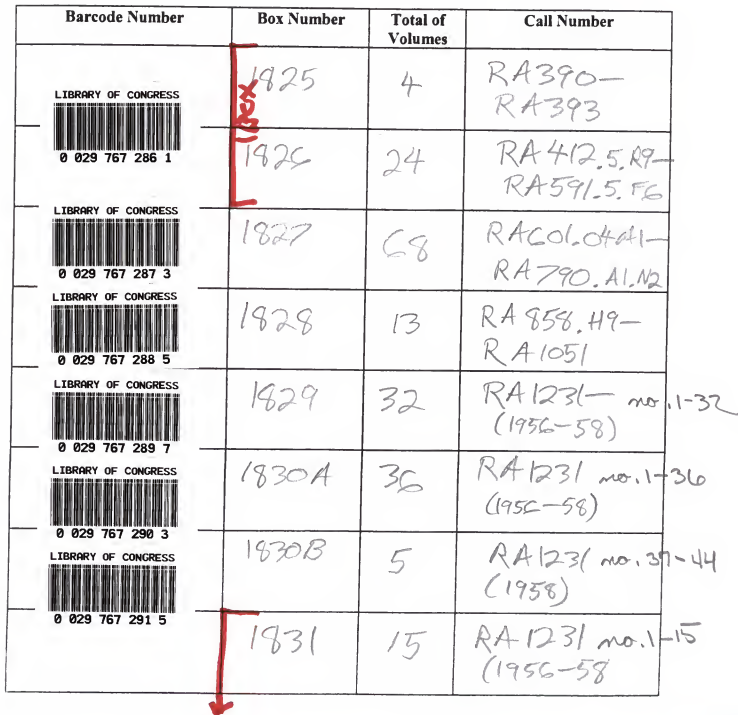 Barcode Number Box Number Total of Volumes Call Number
LIBRARY OF CONGRESS
0 029 767 286 1
1 Box
1825 4 RA390—
RA393
1826 24 RA412.5.R9—
RA591.5.F6
LIBRARY OF CONGRESS
0 029 767 287 3
1827 68 RA601.04A1—
RA790.A1.N2
LIBRARY OF CONGRESS
0 029 767 288 5
1828 13 RA858.H9—
RA1051
LIBRARY OF CONGRESS
0 029 767 289 7
1829 32 RA1231— no.1-32
(1956-58)
LIBRARY OF CONGRESS
0 029 767 290 3
1830A 36 RA1231 no.1-36
(1956-58)
LIBRARY OF CONGRESS
0 029 767 291 5
1830B 5 RA1231 no.37-44
(1958)
1831 15 RA1231 no.1-15
(1956-58